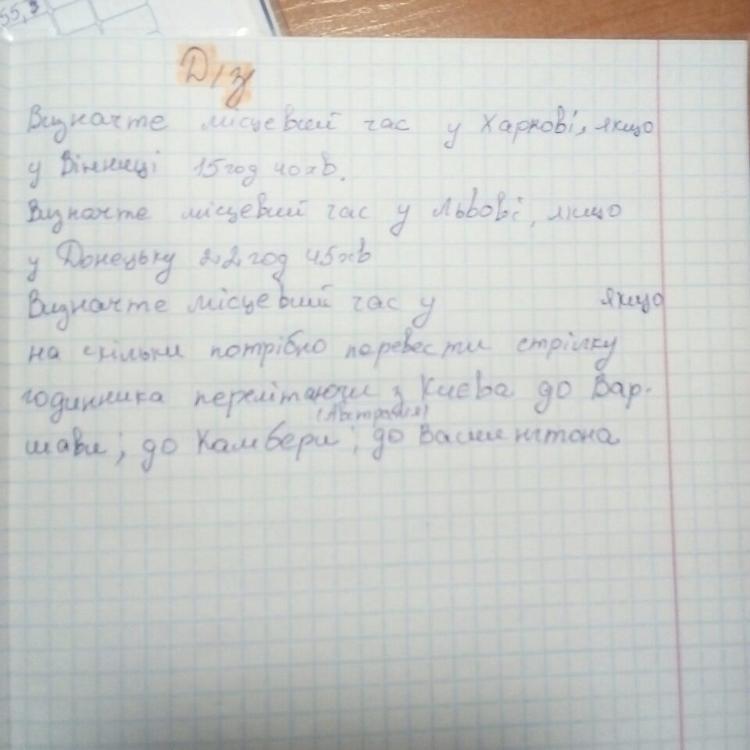 55,3
Д/з
Визначте місцевий час у Харкові, якщо
у Вінниці 15 год 40 хв.
Визначте місцевий час у Львові, якщо
у Донецьку 22 год 45 хв
Визначте місцевий час у якщо
на скільки потрібно перевести стрілку
годинника перелітаючи з Києва до Вар-
(Австралія)
шави; до Камбери; до Вашингтона